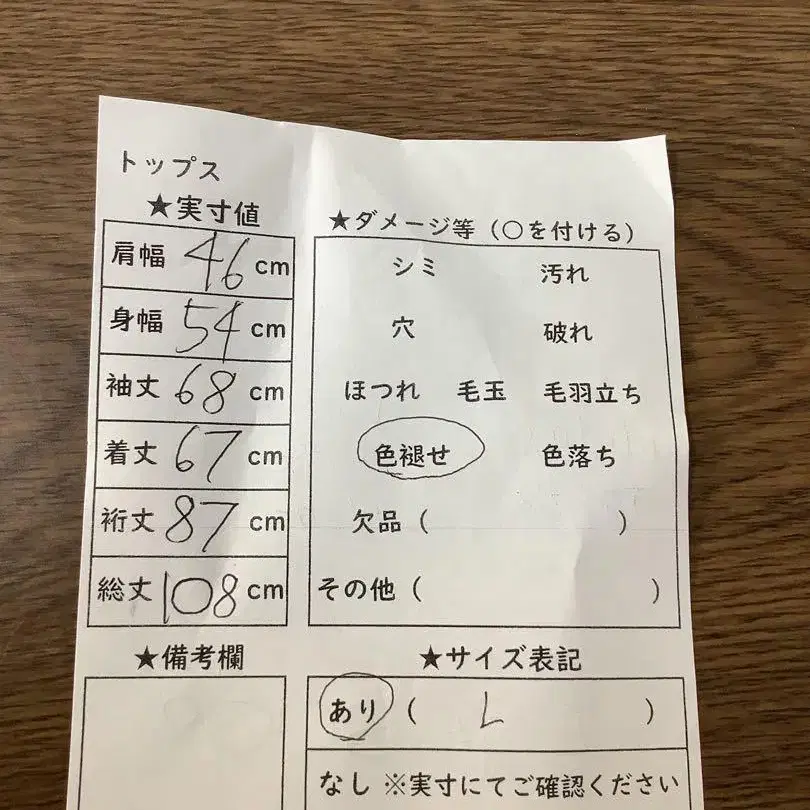 トップス
★実寸値
肩幅 46 cm
身幅 54 cm
袖丈 68 cm
着丈 67 cm
裄丈 87 cm
総丈 108 cm
★備考欄
★ダメージ等（○を付ける）
シミ 汚れ
穴 破れ
ほつれ 毛玉 毛羽立ち
色褪せ 色落ち
欠品（ ）
その他（ ）
★サイズ表記
あり（ L ）
なし ※実寸にてご確認ください